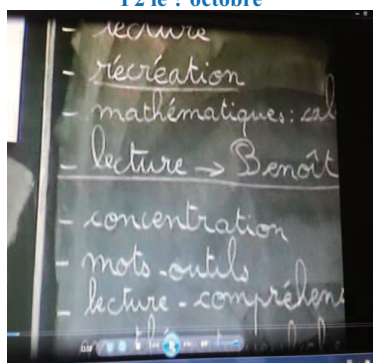 T2 le ? octobre
- lecture
- récréation
- mathématiques : cal
- lecture → Benoît
- concentration
- mots-outils
- lecture - compréhen